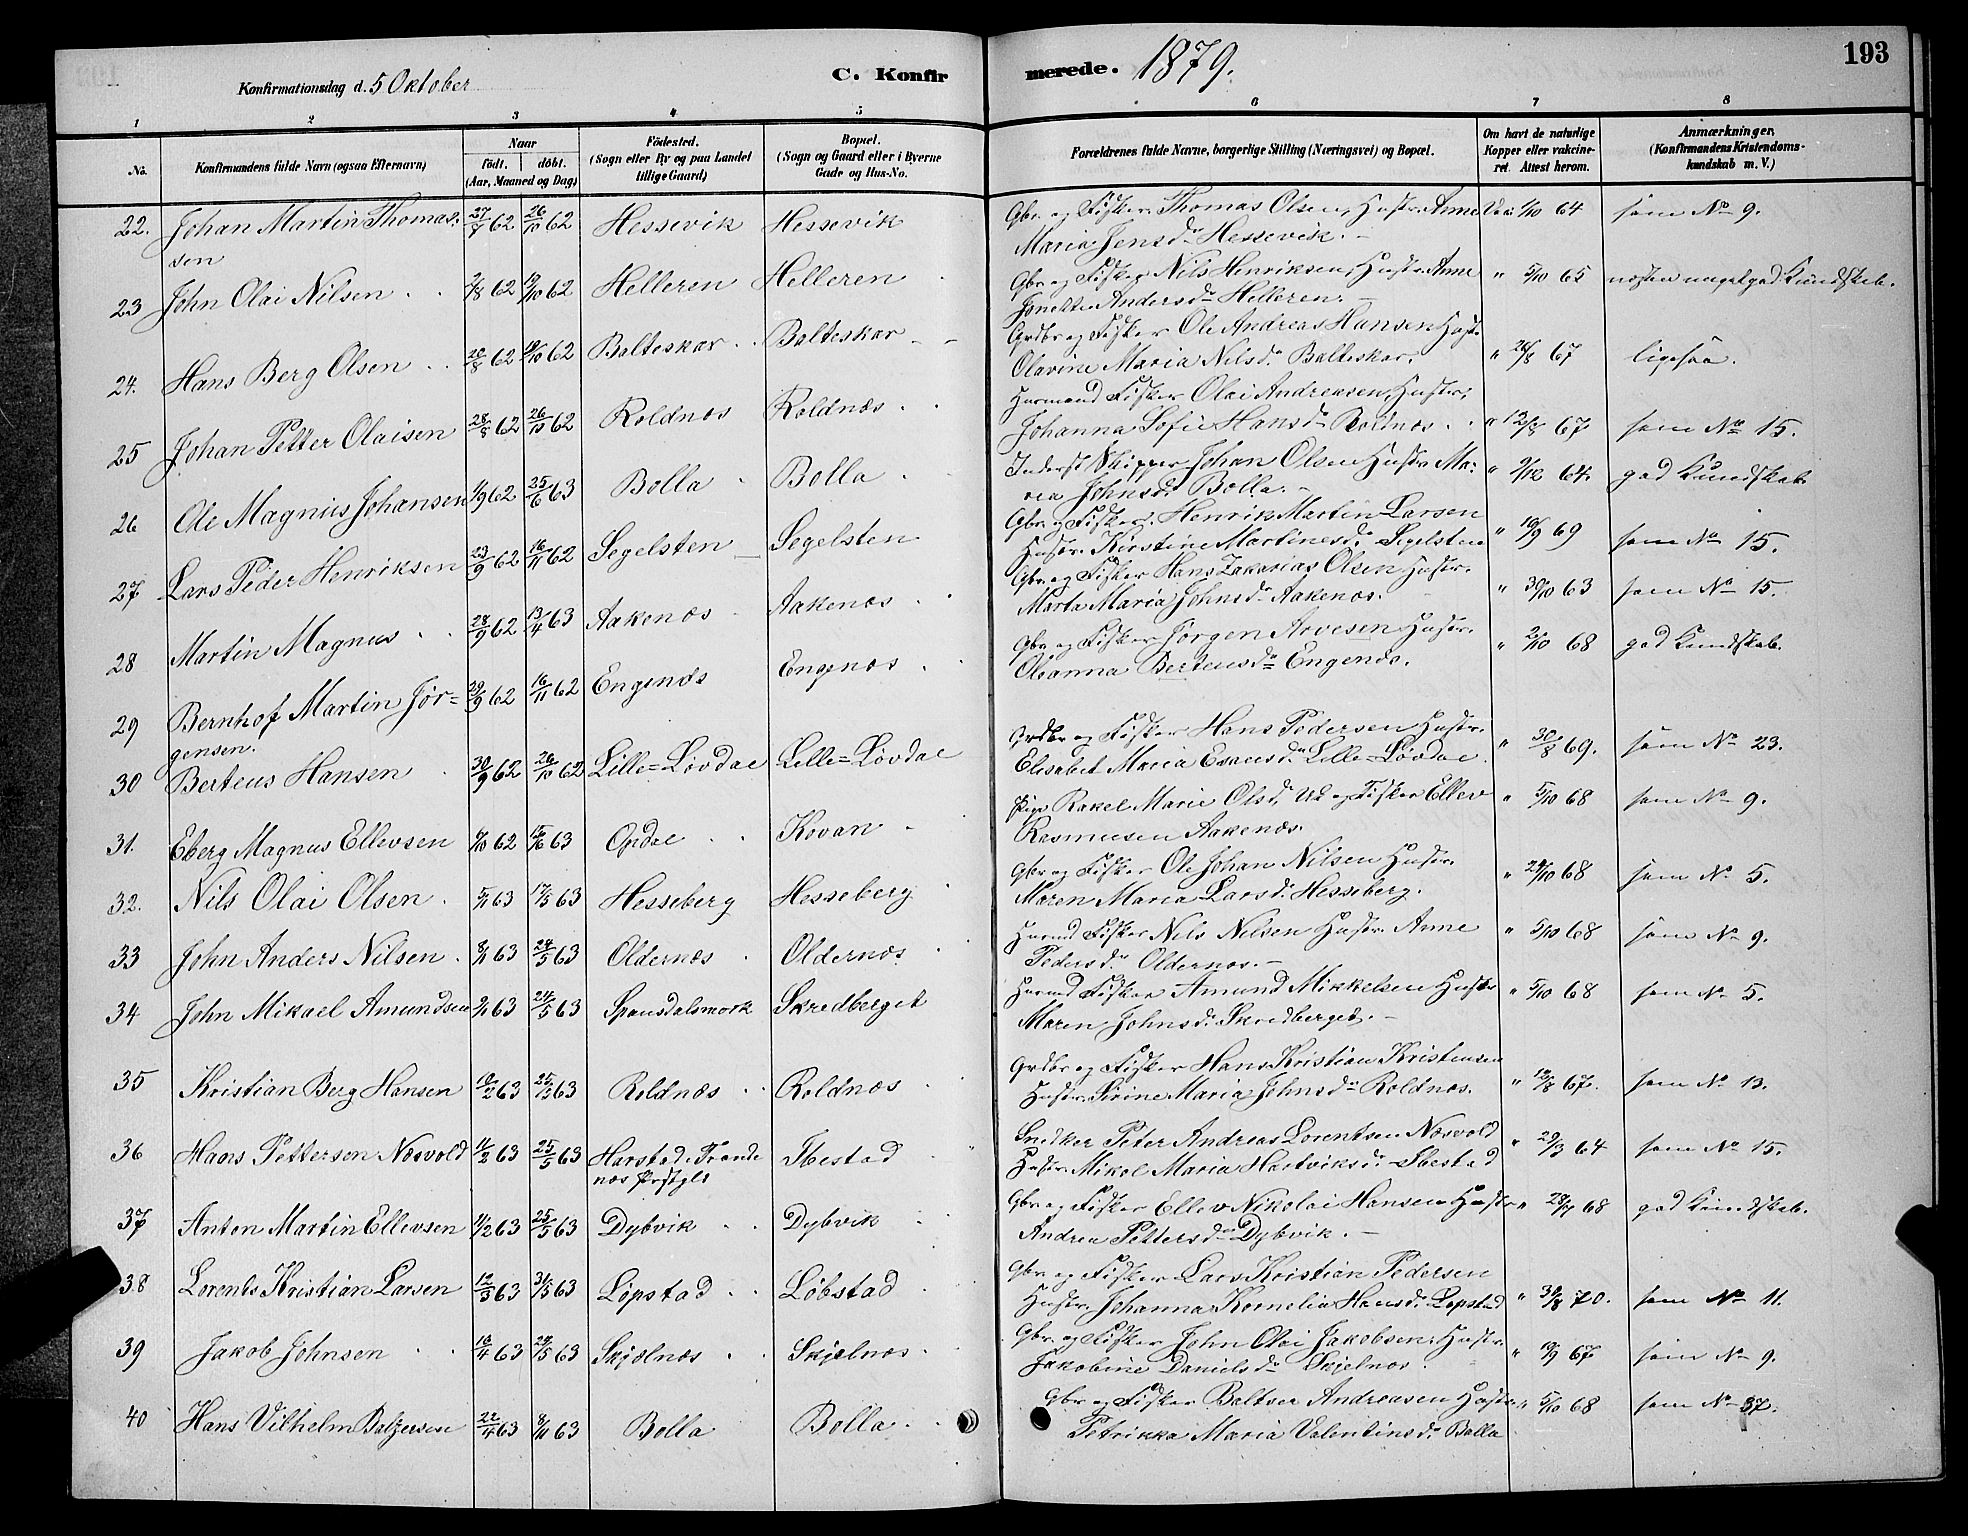 193
Konfirmationsdag d. 5 Oktober
C. Konfir
merede. 1879.
1 2 3 4 5 6 7 8
No. Konfirmandens fulde Navn (ogsaa Efternavn) Naar födt. döbt. (Aar, Maaned og Dag) Födested. (Sogn eller By og paa Landet tillige Gaard) Bopæl. (Sogn og Gaard eller i Byerne Gade og Hus-No. Forældrenes fulde Navne, borgerlige Stilling (Næringsvei) og Bopæl. Om havt de naturlige Kopper eller vakcineret. Attest herom. Anmærkninger. (Konfirmandens Kristendomskundskab m. V.)
22. Johan Martin Thomas- 27/7 62 26/10 62 Hessevik Hessevik Gbr. og Fisker Thomas Olsen, Hustr. Anne Vac 1/10 64 som No 9.
sen Maria Jensd. Hessevik. -
23 John Olai Nilsen 2/8 62 19/10 62 Helleren Helleren Gbr. og Fisker Nils Henriksen, Hustr. Anne " 5/10 65 næsten meget god Kundskab.
Andersd. Helleren. -
24. Hans Berg Olsen 20/8 62 19/10 62 Balteskar Balteskar Grdbr og Fisker Ole Andreas Hansen Hustr.
Olavine Maria Nilsd. Balteskar. " 26/8 67 ligesaa.
25 Johan Petter Olaisen 28/8 62 26/10 62 Roldnæs Roldnæs Husmand Fisker Olai Andreasen, Hustr.
Johanna Sofie Hansd. Roldnæs. " 12/8 67 som No 15.
26 Ole Magnus Johansen 1/9 62 25/6 63 Bolla Bolla Inderst Skipper Johan Olsen Hustr. Ma- " 9/12 64. god Kundskab
ria Johnsd. Bolla. -
27 Lars Peder Henriksen 23/9 62 16/11 62 Segelsten Segelsten Gbr. og Fisker. Henrik Martin Larsen
Hustr. Kirstine Martinesd. Segelsten " 10/9 69 som No 15.
28 Martin Magnus 28/9 62 13/4 63 Aakenæs Aakenæs Gbr. og Fisker Hans Zakarias Olsen Hustr.
Marta Maria Johnsd. Aakenæs. " 30/10 63 som No 15.
29 Bernhof Martin Jør= 29/9 62 16/11 62 Engenæs Engenæs Gbr. og Fisker Jørgen Arvesen Hustr.
gensen. Oleanna Berteusd. Engenæs. " 2/10 68 god Kundskab.
30 Berteus Hansen 30/9 62 26/10 62 Lille=Løvdal Lille=Løvdal Grdbr og Fisker Hans Pedersen Hustr.
Elisabet Maria Esaiasd. Lille=Løvdal. " 30/8 69. som No 23.
31. Eberg Magnus Ellevsen 9/10 62 15/6 63 Opdal Kovan Pige Rakel Marie Olsd. Uæ og Fisker Ellev " 5/10 68 som No 9.
Rasmusen Aakenæs.
32. Nils Olai Olsen 5/1 63 17/5 63 Hesseberg Hesseberg Gbr og Fisker Ole Johan Nilsen Hustr.
Maren Maria Larsd. Hesseberg. " 24/10 68 som No 5.
33 John Anders Nilsen 8/1 63 24/5 63 Oldernæs Oldernæs Husmd Fisker Nils Nilsen Hustr. Anne " 5/10 68 som No 9.
Pedersd. Oldernæs. -
34 John Mikael Amundsen 9/1 63 24/5 63 Spansdalsmark Skredberget Husmd Fisker Amund Mikkelsen Hustr " 5/10 68 som No 5.
Maren Johnsd. Skredberget. -
35 Kristian Berg Hansen 10/2 63 25/5 63 Roldnæs Roldnæs Grdbr og Fisker Hans Kristian Kristensen
Hustr. Sirine Maria Johnsd. Roldnæs. " 12/8 67. som No 13.
36 Hans Pettersen Næsvold 11/2 63 25/5 63 Harstad i Tronde Ibestad Snedker Peter Andreas Lorentsen Næsvold
næs Prstgld Hustr. Mikol Maria Hartviksd. Ibestad " 29/3 64 som No 15.
37 Anton Martin Ellevsen 11/2 63 25/5 63 Dybvik Dybvik Gbr. og Fisker Ellev Nikolai Hansen Hustr " 28/7 68 god Kundskab.
Andrea Pettersd. Dybvik. -
38 Lorents Kristian Larsen 12/3 63 31/5 63 Løpstad Løbstad Gbr. og Fisker Lars Kristian Pedersen
Hustr. Johanna Kornelia Hansd. Løpstad " 31/8 70. som No 11.
39 Jakob Johnsen 16/4 63 24/5 63 Skjelnæs Skjelnæs Gbr. og Fisker John Olai Jakobsen. Hustr.
Jakobine Danielsd. Skjelnæs. " 19/9 67 som No 9.
40 Hans Vilhelm Baltzersen 22/4 63 8/11 63 Bolla Bolla Gbr og Fisker Baltser Andreasen Hustr " 5/10 68 som No 37.
Petrikka Maria Valentinsd. Bolla